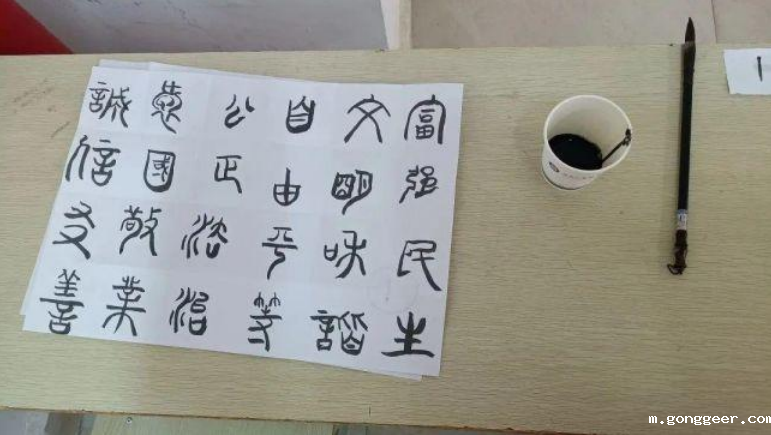 富强民主
文明和谐
自由平等
公正法治
爱国敬业
诚信友善
m.gonggeer.com